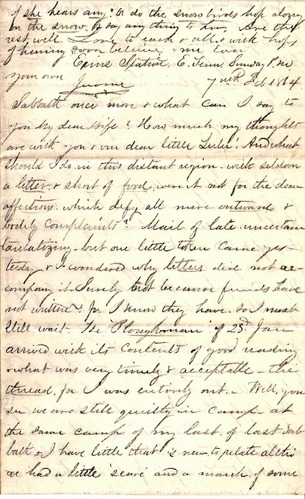 if she hears any? & do the snow birds hop along
on the snow. & say any thing to him. Are they
well. Love to each & all. & with hope
of hearing soon believe me Ever
your own
Strawberry Plains Station, E. Tenn. Sunday P.M.
7 Feb 1864
Sabbath once more & what can I say to
you My dear Wife? How much my thoughts
are with you & our dear little And what
should I do in this distant region. with seldom
a letter, & short of food, were it not for the dear
affections which defy all mere outward &
bodily complaints? Mail of late uncertain
tantalizing - but one little token came yes-
terday & I wondered why letters did not ac-
company it. Surely not because friends have
not written? for I know they have. So I must
still wait. The Ploughman of 23d Jan
arrived with its contents of good reading
& what was very timely & acceptable - the
thread, for I was entirely out. - Well, you
see we are still quietly in camp at
the same camp of my last, of last Sab-
bath & I have little that is new to relate altho'
we had a little 'scare' and a march of some